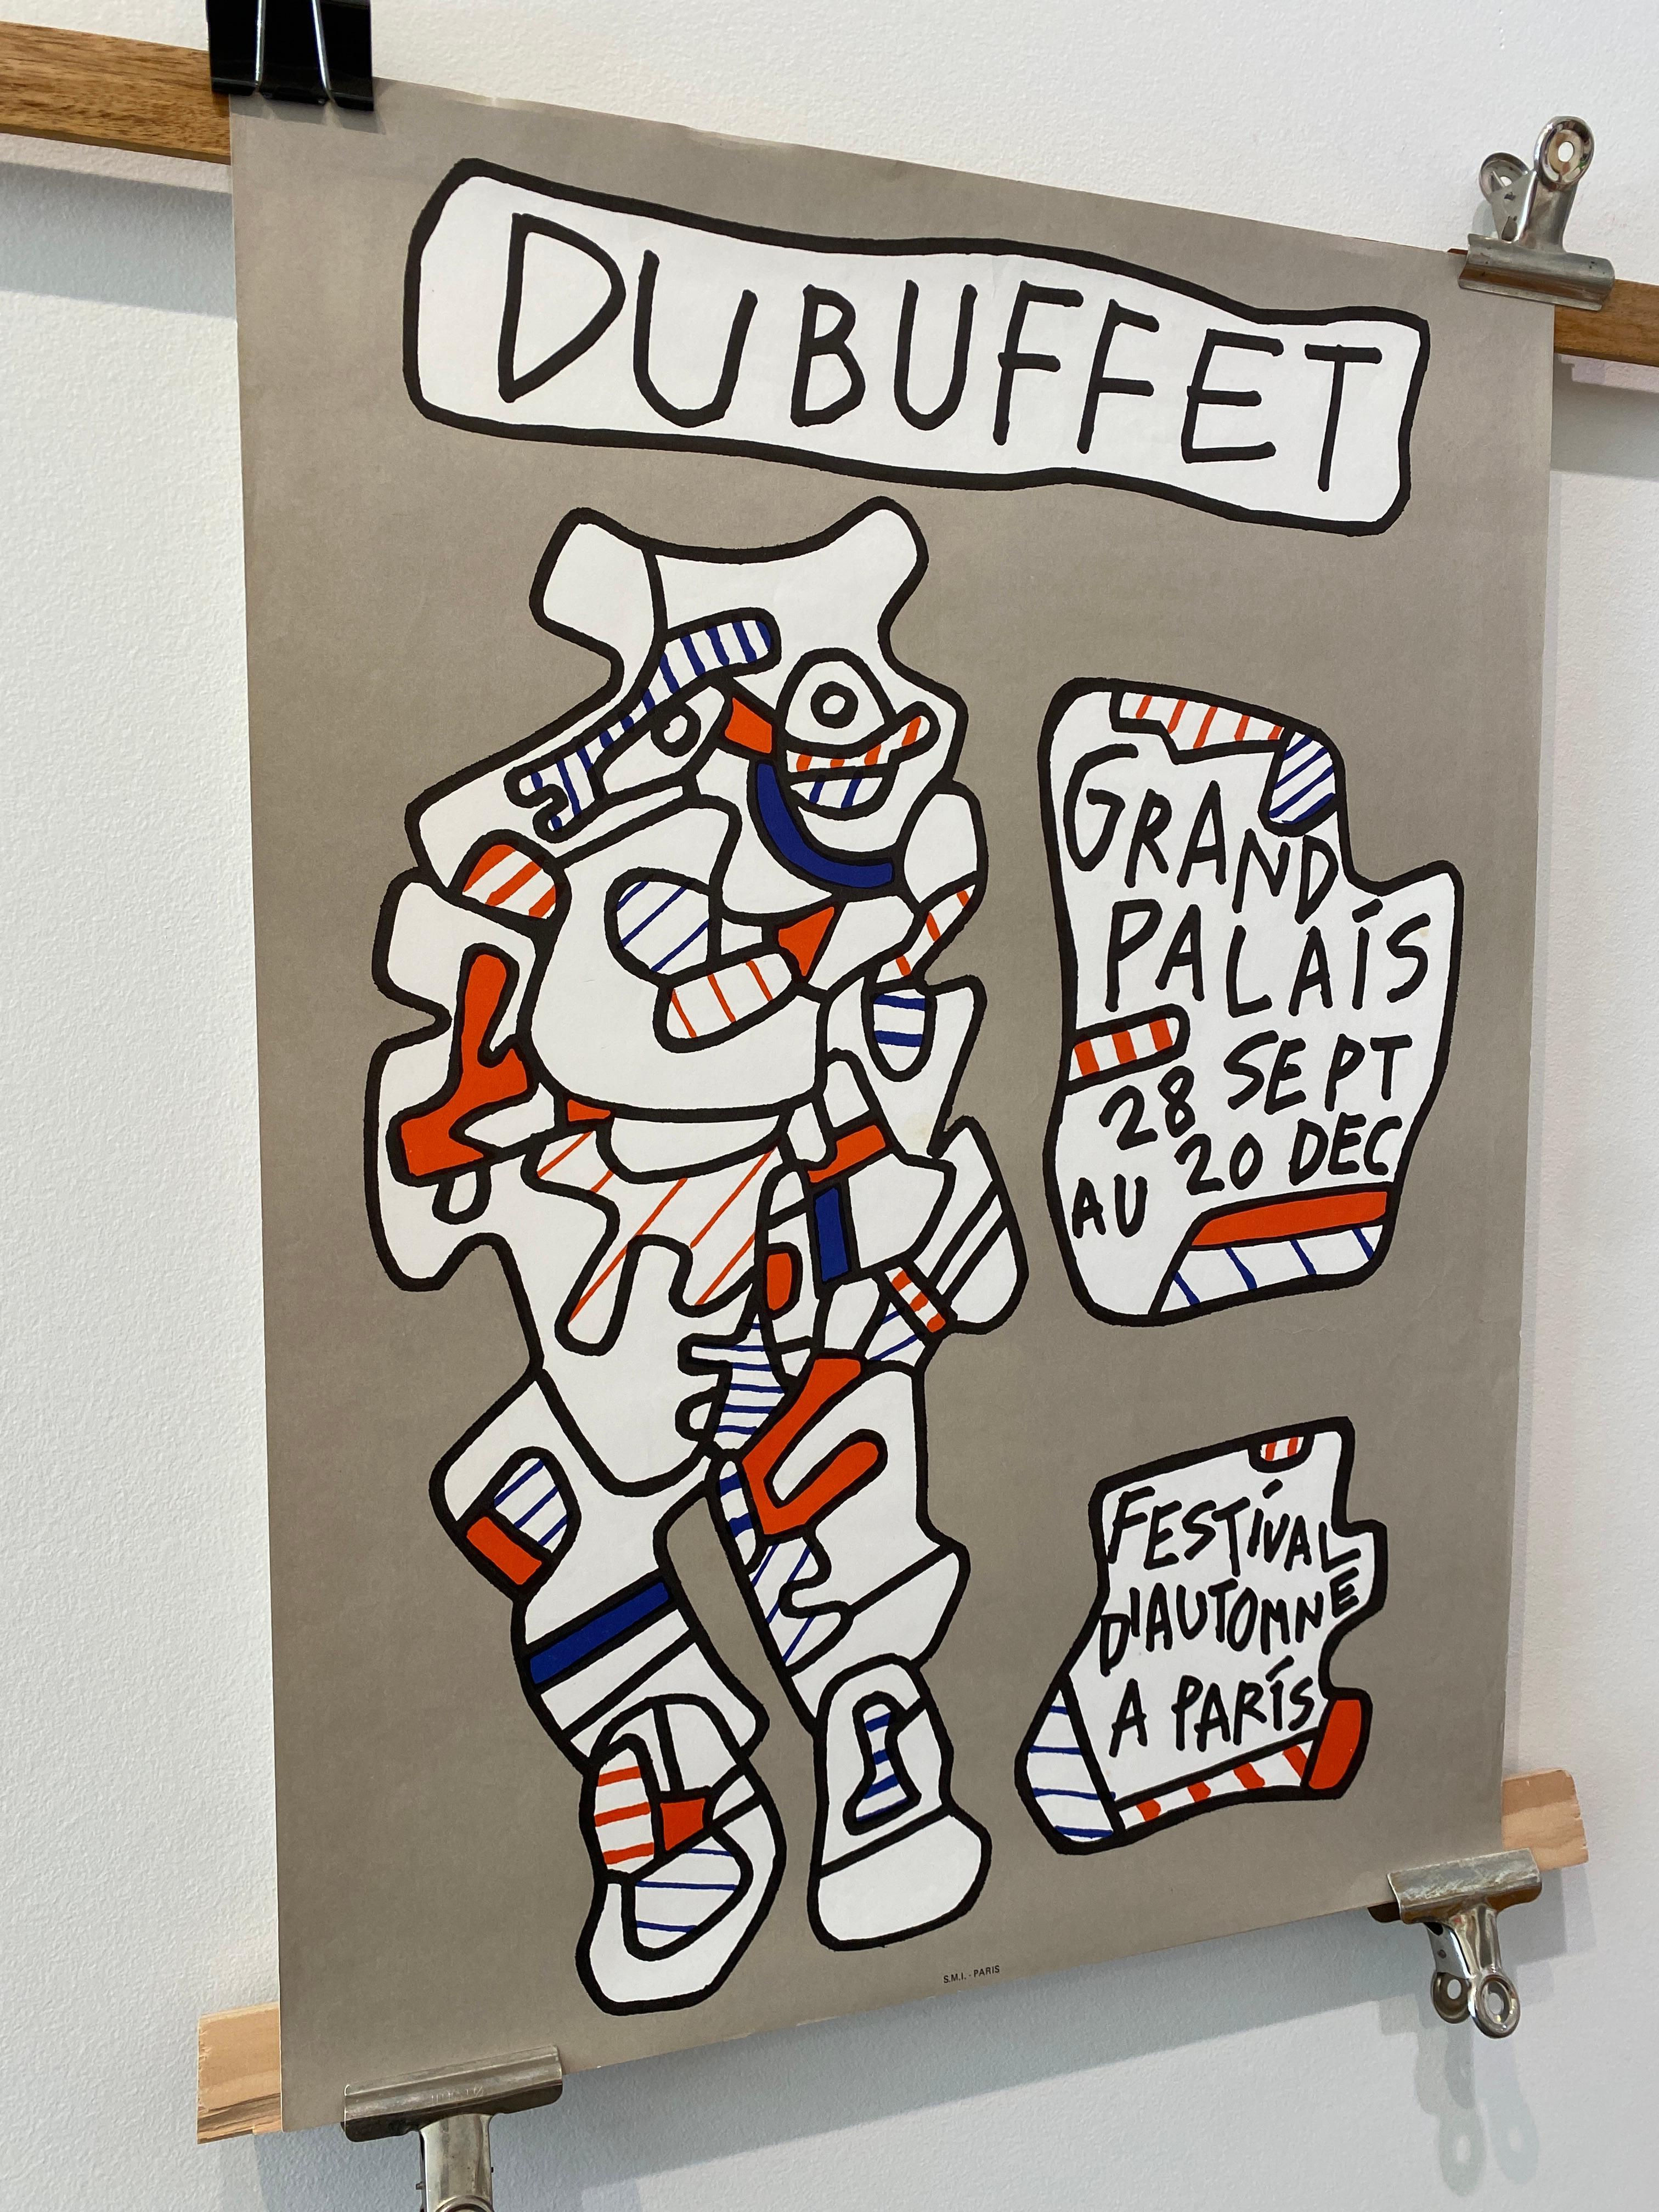 DUBUFFET
GRAND
PALAIS
28 SEPT
AU 20 DEC
FESTIVAL
D'AUTOMNE
A PARIS
S.M.I. - PARIS